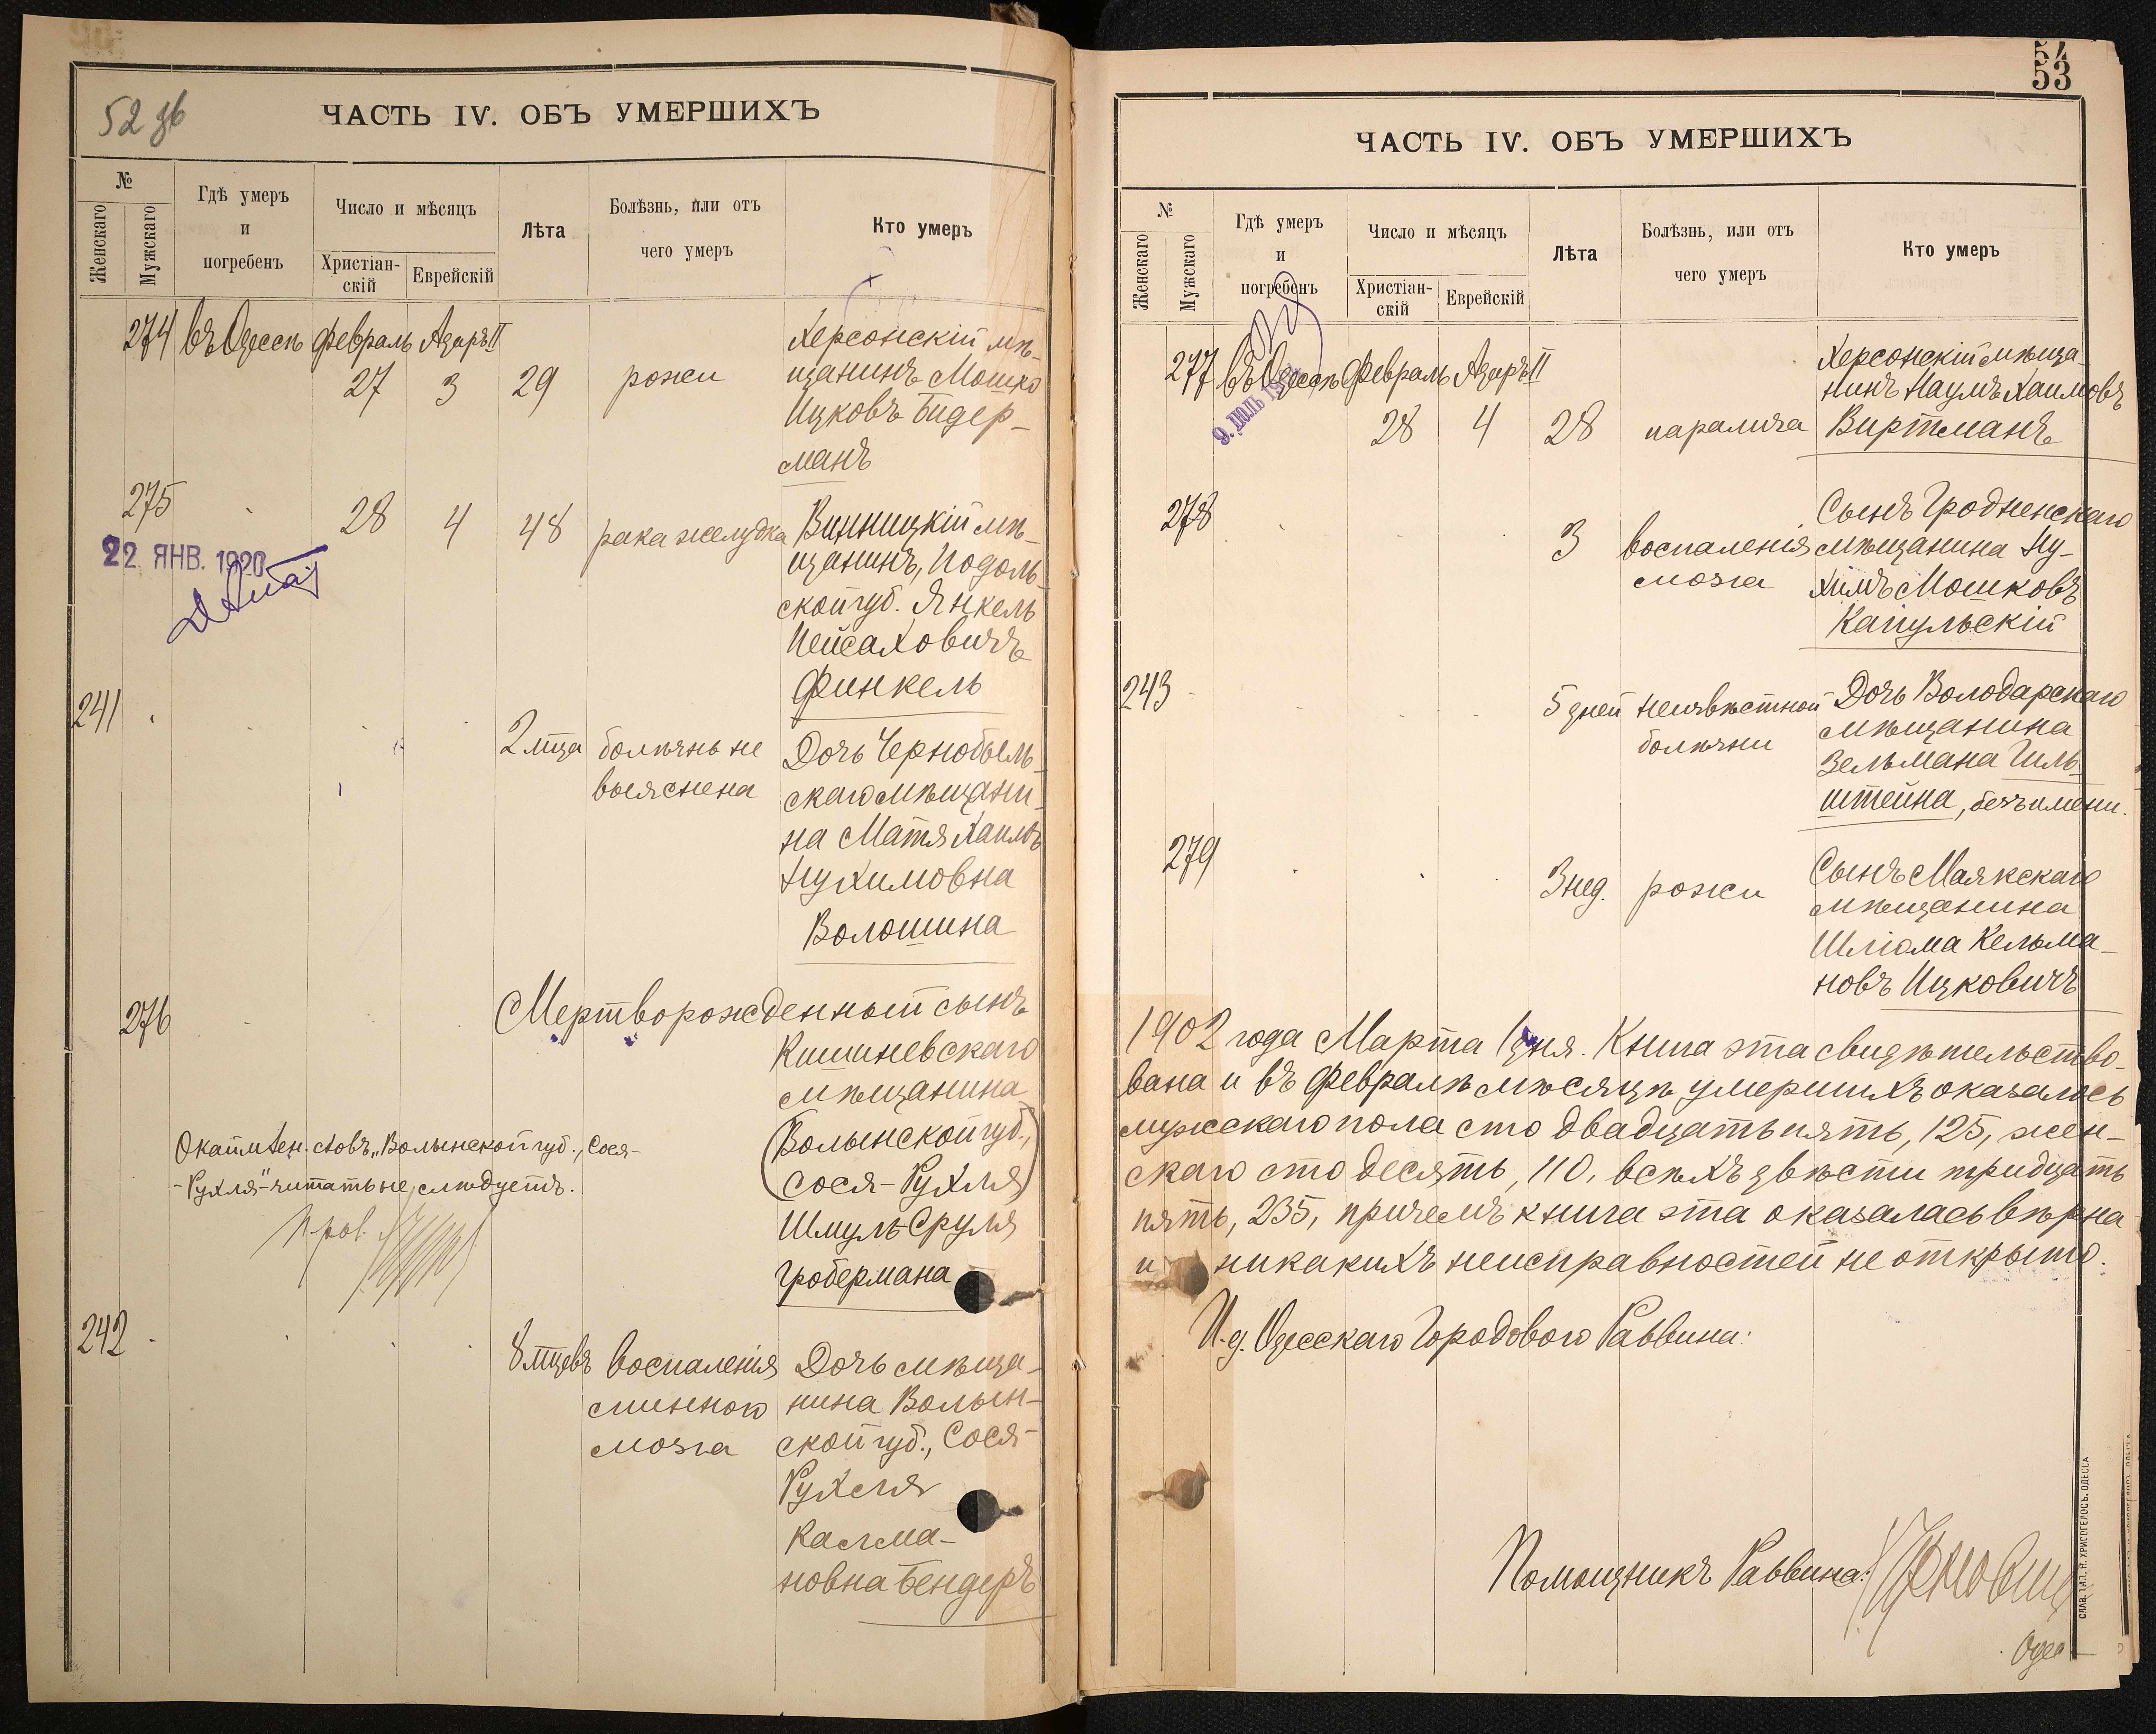 52 зв
ЧАСТЬ IV. ОБЪ УМЕРШИХЪ
№
Женскаго
Мужскаго
Гдѣ умеръ
и
погребенъ
Число и мѣсяцъ
Христіан-
скій
Еврейскій
Лѣта
Болѣзнь, или отъ
чего умеръ
Кто умеръ
274 въ Одессѣ Февраль Адаръ II
27 3 29 рожи
Херсонскій мѣ-
щанинъ Мошко
Ицковъ Бидер-
манъ
275 28 4 48 рака желудка
Винницкій мѣ-
щанинъ, Подоль-
ской губ. Янкель
Пейсаховичъ
Финкель
22 ЯНВ. 1920
241 2 м-ца болѣзнь не
выяснена
Дочь Чернобыль-
скаго мѣщани-
на Матя Хаимъ
Нухимовна
Волошина
276 Мертворожденный сынъ
Кишиневскаго
мѣщанина
(Волынской губ.,
Сося-Рухля)
Шмуль-Сруля
Гробермана
словъ „Волынской губ., Сося-
-Рухля"- читать не слѣдуетъ.
242 8 м-цевъ воспаленія
спинного
мозга
Дочь мѣща-
нина Волын-
ской губ., Сося-
Рухля
Калма-
новна Бендеръ
54
53
ЧАСТЬ IV. ОБЪ УМЕРШИХЪ
№
Женскаго
Мужскаго
Гдѣ умеръ
и
погребенъ
Число и мѣсяцъ
Христіан-
скій
Еврейскій
Лѣта
Болѣзнь, или отъ
чего умеръ
Кто умеръ
277 въ Одессѣ Февраль Адаръ II
28 4 28 паралича
Херсонскій мѣща-
нинъ Наумъ Хаимовъ
Виртманъ
278 3 воспаленія
мозга
Сынъ Гродненскаго
мѣщанина Ну-
химъ Мошковъ
Капульскій
243 5 дней неизвѣстной
болѣзни
Дочь Володарскаго
мѣщанина
Зельмана Гиль-
штейна, безъ имени.
279 3 нед. рожи
Сынъ Маякскаго
мѣщанина
Шліома Кельма-
новъ Ицковичъ
1902 года Марта 1 дня. Книга эта свидѣтельство-
вана и въ Февралѣ мѣсяцѣ умершихъ оказалось
мужскаго пола сто двадцать пять, 125, жен-
скаго сто десять, 110, всѣхъ двѣсти тридцать
пять, 235, причемъ книга эта оказалась вѣрна
и никакихъ неисправностей не открыто.
И. д. Одесскаго Городового Раввина:
Помощникъ Раввина: